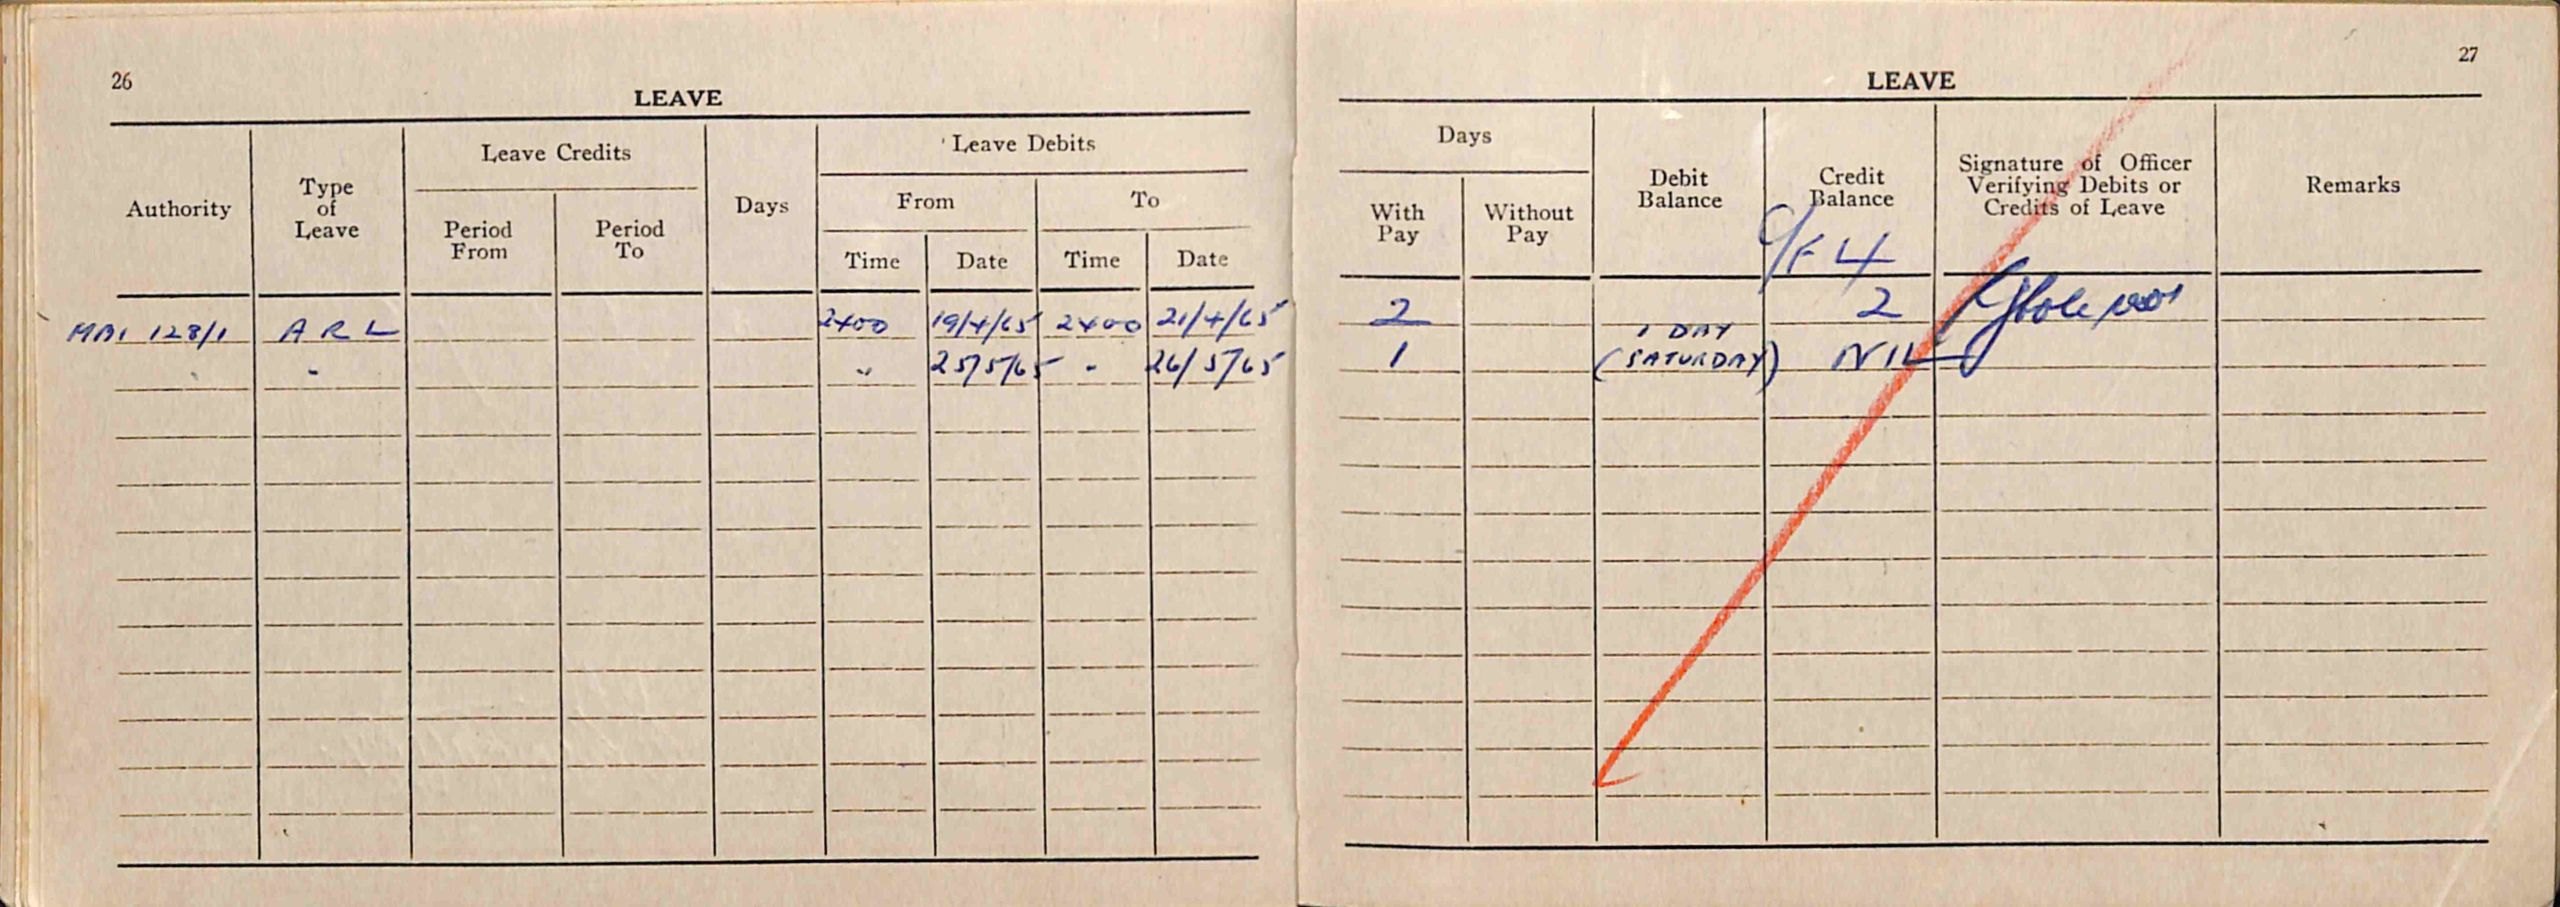 26
LEAVE
Authority
Type
of
Leave
Leave Credits
Period
From
Period
To
Days
Leave Debits
From
To
Time
Date
Time
Date
MBI 128/1 A R L 2400 19/4/65 2400 21/4/65
" " 25/5/65 " 26/5/65
27
LEAVE
Days
With
Pay
Without
Pay
Debit
Balance
Credit
Balance
C/F 4
Signature of Officer
Verifying Debits or
Credits of Leave
Remarks
2 2
1 1 DAY
(SATURDAY) NIL